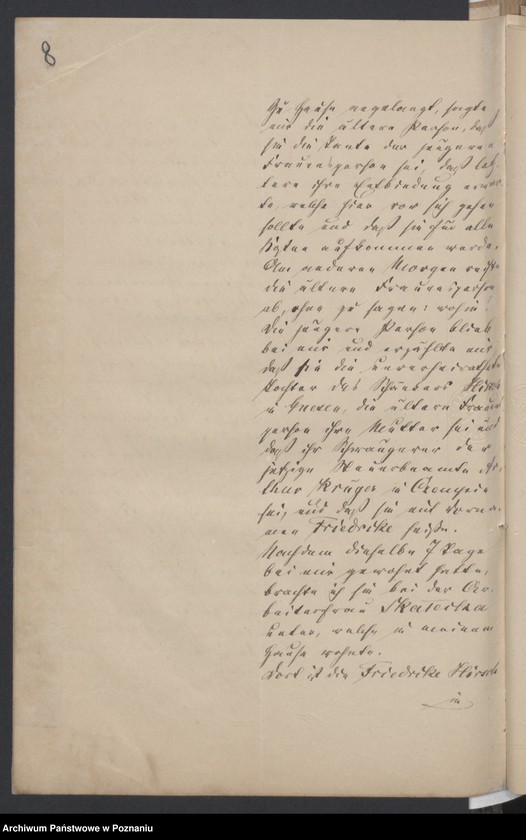 8
Zu Hause angelangt, sagte
mir die ältere Person, daß
sie die Tante der jüngeren
Frauensperson sei, daß letz-
tere ihre Entbindung erwar-
te, welche hier vor sich gehen
sollte und daß sie für alle
Kosten aufkommen werde.
Am anderen Morgen reiste
die ältere Frauensperson
ab, ohne zu sagen: wohin!
Die jüngere Person blieb
bei mir und erzählte mir
daß sie die unverheirathete
Tochter des
in Gnesen, die ältere Frauens-
person ihre Mutter sei und
daß ihr Schwängerer der
jetzige Steuerbeamte Ar-
thur Krüger in
sei, und daß sie mit Vorna-
men Friedrike heiße.
Nachdem dieselbe 7 Tage
bei mir gewohnt hatte,
brachte ich sie bei der Ar-
beiterfrau
unter, welche in meinem
Hause wohnte.
Dort ist die Friedrike
in
Archiwum Państwowe w Poznaniu